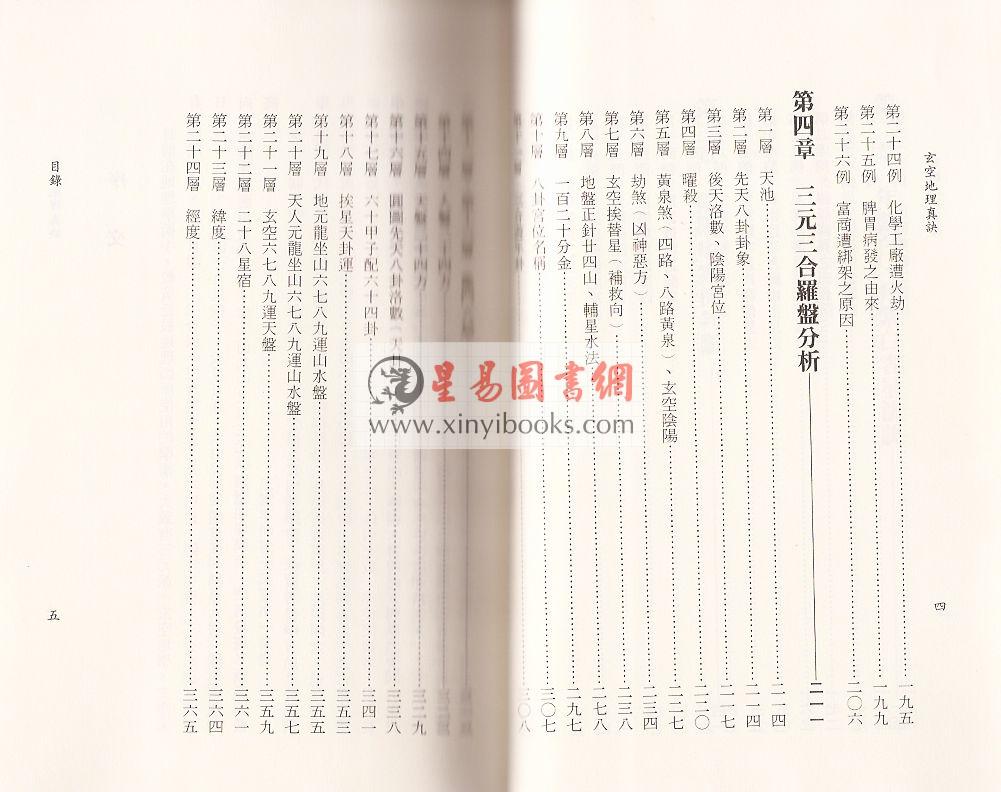 玄空地理真訣
第二十四例 化學工廠遭火劫 一九五
第二十五例 脾胃病發之由來 一九九
第二十六例 富商遭綁架之原因 二〇六
第四章 三元三合羅盤分析 二一一
第一層 天池 二一四
第二層 先天八卦卦象 二一四
第三層 後天洛數、陰陽宮位 二一七
第四層 曜殺 二二〇
第五層 黃泉煞（四路、八路黃泉）、玄空陰陽 二二七
第六層 劫煞（凶神惡方） 二三四
第七層 玄空挨替星（補救向） 二三八
第八層 地盤正針廿四山、輔星水法 二七八
第九層 一百二十分金 二九七
第十層 八卦宮位名稱 三〇七
三〇八
四
第十五層 三二九
第十六層 圓圖先天八卦洛數（天 三三八
第十七層 六十甲子配六十四卦 三四一
第十八層 挨星天卦運 三五三
第十九層 地元龍坐山六七八九運山水盤 三五五
第二十層 天人元龍坐山六七八九運山水盤 三五七
第二十一層 玄空六七八九運天盤 三五九
第二十二層 二十八星宿 三六一
第二十三層 緯度 三六四
第二十四層 經度 三六五
目錄
五
星易圖書網
www.xinyibooks.com